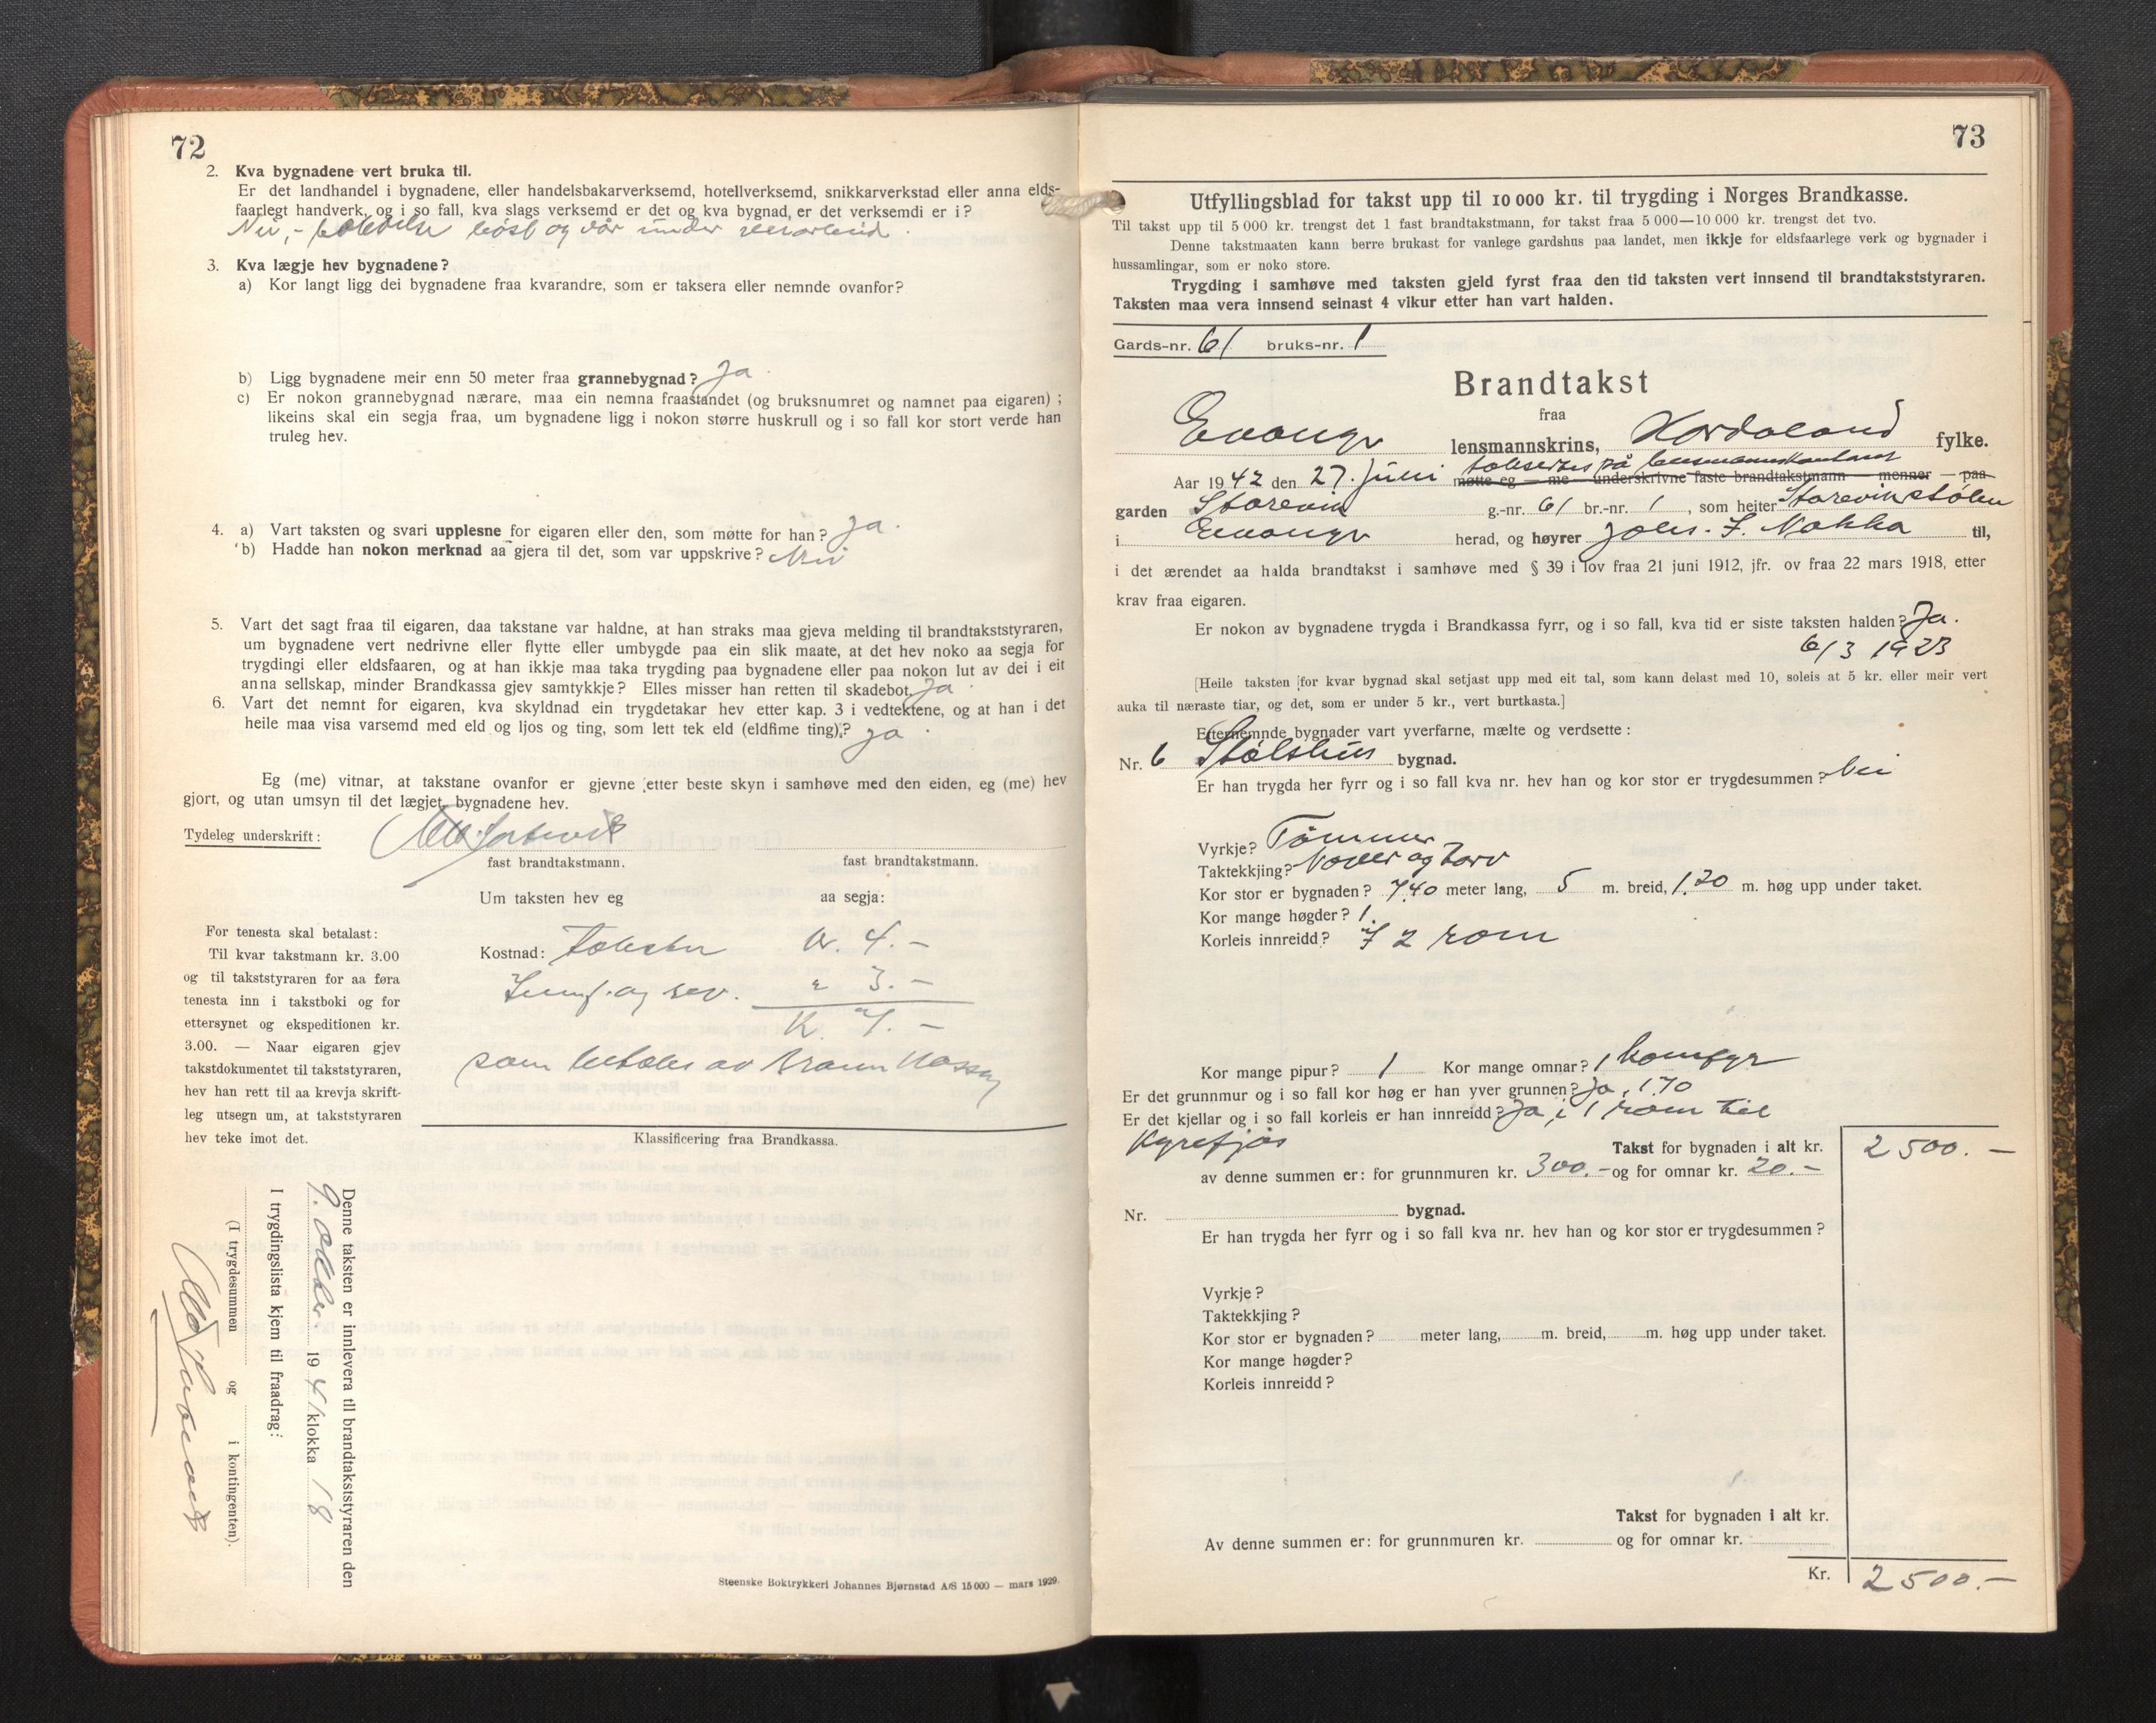 72
2. Kva bygnadene vert bruka til.
Er det landhandel i bygnadene, eller handelsbakarverksemd, hotellverksemd, snikkarverkstad eller anna elds-
faarlegt handverk, og i so fall, kva slags verksemd er det og kva bygnad, er det verksemdi er i?
Nei, - høst og vår under
3. Kva lægje hev bygnadene?
a) Kor langt ligg dei bygnadene fraa kvarandre, som er taksera eller nemnde ovanfor?
b) Ligg bygnadene meir enn 50 meter fraa grannebygnad? Ja.
c) Er nokon grannebygnad nærare, maa ein nemna fraastandet (og bruksnumret og namnet paa eigaren);
likeins skal ein segja fraa, um bygnadene ligg i nokon større huskrull og i so fall kor stort verde han
truleg hev.
4. a) Vart taksten og svari upplesne for eigaren eller den, som møtte for han? Ja.
b) Hadde han nokon merknad aa gjera til det, som var uppskrive? Nei
5. Vart det sagt fraa til eigaren, daa takstane var haldne, at han straks maa gjeva melding til brandtakststyraren,
um bygnadene vert nedrivne eller flytte eller umbygde paa ein slik maate, at det hev noko aa segja for
trygdingi eller eldsfaaren, og at han ikkje maa taka trygding paa bygnadene eller paa nokon lut av dei i eit
anna sellskap, minder Brandkassa gjev samtykkje? Elles misser han retten til skadebot. Ja.
6. Vart det nemnt for eigaren, kva skyldnad ein trygdetakar hev etter kap. 3 i vedtektene, og at han i det
heile maa visa varsemd med eld og ljos og ting, som lett tek eld (eldfime ting)? Ja.
Eg (me) vitnar, at takstane ovanfor er gjevne etter beste skyn i samhøve med den eiden, eg (me) hev
gjort, og utan umsyn til det lægjet, bygnadene hev.
Tydeleg underskrift:
fast brandtakstmann. fast brandtakstmann.
Um taksten hev eg aa segja:
For tenesta skal betalast:
Til kvar takstmann kr. 3.00
og til takststyraren for aa føra
tenesta inn i takstboki og for
ettersynet og ekspeditionen kr.
3.00. — Naar eigaren gjev
takstdokumentet til takststyraren,
hev han rett til aa krevja skrift-
leg utsegn um, at takststyraren
hev teke imot det.
Kostnad: Taksten kr. 4.-
og " 3.-
Kr. 7.-
som betales av
Klassificering fraa Brandkassa.
Denne taksten er innlevera til brandtakststyraren den
9. oktbr. 1941 klokka 18
I trygdingslista kjem til fraadrag:
(I trygdesummen og i kontingenten).
Steenske Boktrykkeri Johannes Bjørnstad A/S 15 000 — mars 1929.
73
Utfyllingsblad for takst upp til 10 000 kr. til trygding i Norges Brandkasse.
Til takst upp til 5 000 kr. trengst det 1 fast brandtakstmann, for takst fraa 5 000—10 000 kr. trengst det tvo.
Denne takstmaaten kann berre brukast for vanlege gardshus paa landet, men ikkje for eldsfaarlege verk og bygnader i
hussamlingar, som er noko store.
Trygding i samhøve med taksten gjeld fyrst fraa den tid taksten vert innsend til brandtakststyraren.
Taksten maa vera innsend seinast 4 vikur etter han vart halden.
Gards-nr. 61 bruks-nr. 1
Brandtakst
fraa
Evanger lensmannskrins, Hordaland fylke.
takseres på lensmannskontoret
Aar 1942 den 27. juni møtte eg — me — underskrivne faste brandtakstmann — menner — paa
garden Storevik g.-nr. 61 br.-nr. 1, som heiter Storevikstølen
i Evanger herad, og høyrer Johs. I. Nokka til,
i det ærendet aa halda brandtakst i samhøve med § 39 i lov fraa 21 juni 1912, jfr. ov fraa 22 mars 1918, etter
krav fraa eigaren.
Er nokon av bygnadene trygda i Brandkassa fyrr, og i so fall, kva tid er siste taksten halden? Ja.
6/3 1923
[Heile taksten for kvar bygnad skal setjast upp med eit tal, som kann delast med 10, soleis at 5 kr. eller meir vert
auka til næraste tiar, og det, som er under 5 kr., vert burtkasta.]
Etternemnde bygnader vart yverfarne, mælte og verdsette:
Nr. 6 Stølshus bygnad.
Er han trygda her fyrr og i so fall kva nr. hev han og kor stor er trygdesummen? Nei
Vyrkje? Tømmer
Taktekkjing? Næver og Torv
Kor stor er bygnaden? 7.40 meter lang, 5 m. breid, 1.20 m. høg upp under taket.
Kor mange høgder? 1.
Korleis innreidd? I 2 rom
Kor mange pipur? 1 Kor mange omnar? 1 komfyr
Er det grunnmur og i so fall kor høg er han yver grunnen? Ja, 1.70
Er det kjellar og i so fall korleis er han innreidd? Ja, i 1 rom til
Kyrefjøs
Takst for bygnaden i alt kr. 2500.-
av denne summen er: for grunnmuren kr. 300.- og for omnar kr. 20.-
Nr. bygnad.
Er han trygda her fyrr og i so fall kva nr. hev han og kor stor er trygdesummen?
Vyrkje?
Taktekkjing?
Kor stor er bygnaden? meter lang, m. breid, m. høg upp under taket.
Kor mange høgder?
Korleis innreidd?
Takst for bygnaden i alt kr.
Av denne summen er: for grunnmuren kr. og for omnar kr.
Kr. 2500.-